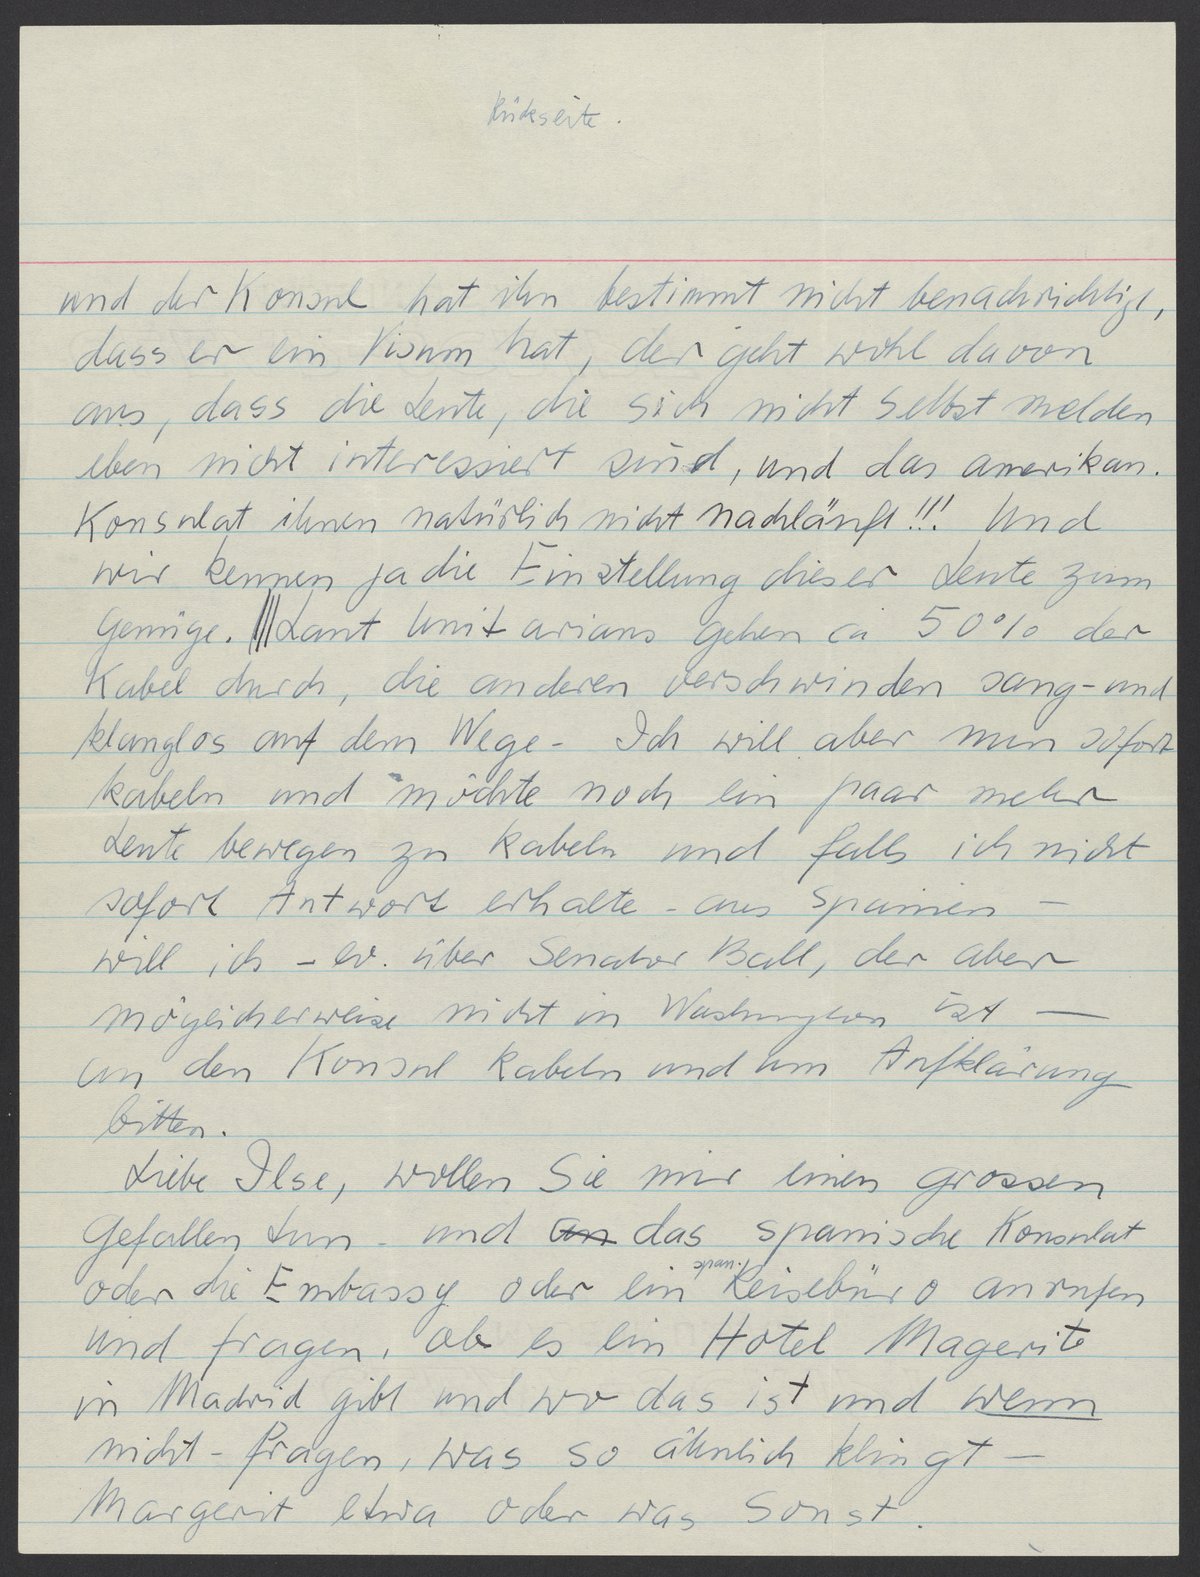 Rükseite.
und der Konsul hat ihn bestimmt nicht benachrichtigt,
dass er ein Visum hat, der geht wohl davon
aus, dass die Leute, die sich nicht selbst melden
eben nicht interessiert sind, und das amerikan.
Konsulat ihnen natürlich nicht nachläuft!!! Und
wir kennen ja die Einstellung dieser Leute zum
Genüge. Laut Unitarians gehen ca 50% der
Kabel durch, die anderen verschwinden sang- und
klanglos auf dem Wege - Ich will aber nun sofort
kabeln und möchte noch ein paar mehr
Leute bewegen zu kabeln und falls ich nicht
sofort Antwort erhalte - aus Spanien -
will ich - ev. über Senator Ball, der aber
möglicherweise nicht in Washington ist —
an den Konsul kabeln und um Aufklärung
bitten.
Liebe Ilse, wollen Sie mir einen grossen
Gefallen tun - und an das spanische Konsulat
oder die Embassy oder ein Reisebüro anrufen
und fragen, ob es ein Hotel Magerite
in Madrid gibt und wo das ist und wenn
nicht - fragen, was so ähnlich klingt -
Margerit etwa oder was Sonst.